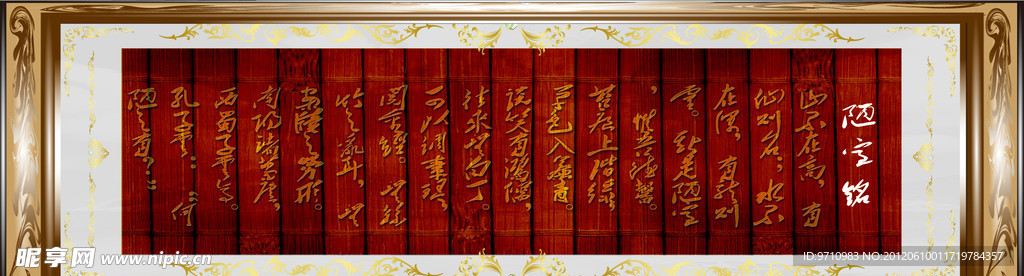 陋室铭
山不在高，有
仙则名。水不
在深，有龙则
灵。斯是陋室
，惟吾德馨。
苔痕上阶绿，
草色入帘青。
谈笑有鸿儒，
往来无白丁。
可以调素琴，
阅金经。无丝
竹之乱耳，无
案牍之劳形。
南阳诸葛庐，
西蜀子云亭。
孔子云：“何
陋之有？”
昵享网 www.nipic.cn
ID:9710983 NO:20120610011719784357